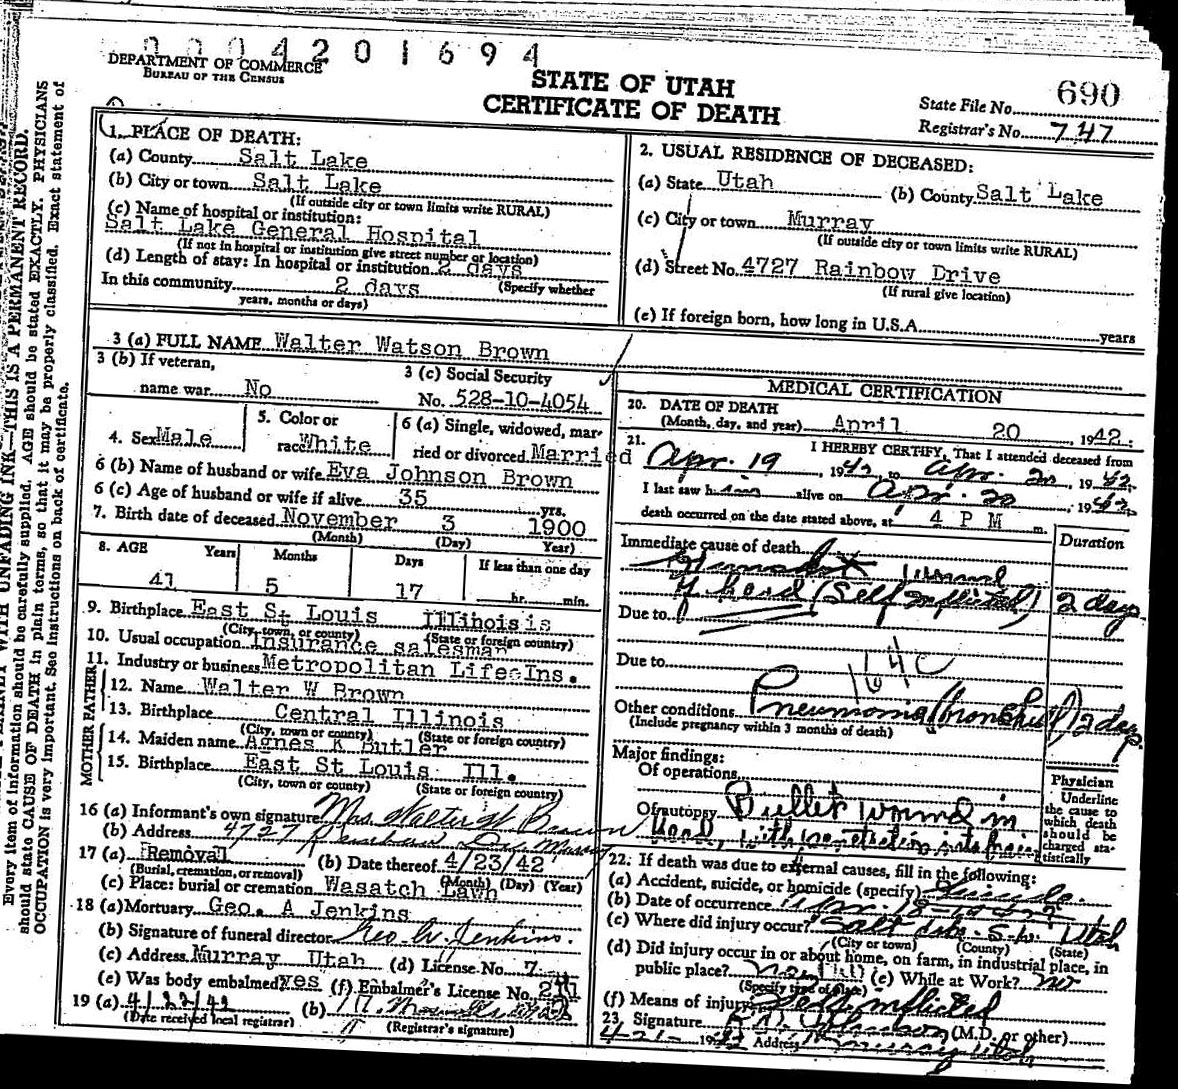 0004201694
DEPARTMENT OF COMMERCE
BUREAU OF THE CENSUS
STATE OF UTAH
CERTIFICATE OF DEATH
State File No. 690
Registrar's No. 747
Every item of information should be carefully supplied. AGE should be stated EXACTLY. PHYSICIANS
should state CAUSE OF DEATH in plain terms, so that it may be properly classified. Exact statement of
OCCUPATION is very important. See instructions on back of certificate.
WITH UNFADING INK—THIS IS A PERMANENT RECORD.
1. PLACE OF DEATH:
(a) County Salt Lake
(b) City or town Salt Lake
(If outside city or town limits write RURAL)
(c) Name of hospital or institution:
Salt Lake General Hospital
(If not in hospital or institution give street number or location)
(d) Length of stay: In hospital or institution 2 days
In this community 2 days (Specify whether
years, months or days)
2. USUAL RESIDENCE OF DECEASED:
(a) State Utah (b) County Salt Lake
(c) City or town Murray
(If outside city or town limits write RURAL)
(d) Street No. 4727 Rainbow Drive
(If rural give location)
(e) If foreign born, how long in U.S.A. years
3 (a) FULL NAME Walter Watson Brown
3 (b) If veteran,
name war No
3 (c) Social Security
No. 528-10-4054
4. Sex Male
5. Color or
race White
6 (a) Single, widowed, mar-
ried or divorced Married
6 (b) Name of husband or wife Eva Johnson Brown
6 (c) Age of husband or wife if alive 35 yrs.
7. Birth date of deceased November 3 1900
(Month) (Day) Year)
8. AGE Years Months Days If less than one day
41 5 17 hr. min.
9. Birthplace East St Louis Illinois is
(City, town, or county) (State or foreign country)
10. Usual occupation Insurance salesman
11. Industry or business Metropolitan Life Ins.
FATHER
12. Name Walter W Brown
13. Birthplace Central Illinois
(City, town or county) (State or foreign country)
MOTHER
14. Maiden name Agnes K Butler
15. Birthplace East St Louis Ill.
(City, town or county) (State or foreign country)
16 (a) Informant's own signature Mrs Walter W Brown
(b) Address 4727 Rainbow Dr. Murray
17 (a) Removal (b) Date thereof 4/23/42
(Burial, cremation, or removal) (Month) (Day) (Year)
(c) Place: burial or cremation Wasatch Lawn
18 (a) Mortuary Geo. A Jenkins
(b) Signature of funeral director Geo. W. Jenkins.
(c) Address Murray Utah (d) License No. 7
(e) Was body embalmed? yes (f) Embalmer's License No.
19 (a) 4/22/42 (b)
(Date received local registrar) (Registrar's signature)
MEDICAL CERTIFICATION
20. DATE OF DEATH
(Month, day, and year) April 20 1942.
21. I HEREBY CERTIFY, That I attended deceased from
Apr. 19, 1942 to Apr. 20, 1942.
I last saw him alive on Apr. 20, 1942,
death occurred on the date stated above, at 4 P M m.
Duration
Immediate cause of death
Gunshot wound
of head (Self inflicted) 2 days
Due to
Due to
164c
Other conditions Pneumonia (bronchial) 2 days
(Include pregnancy within 3 months of death)
Major findings:
Of operations
Of autopsy Bullet wound in
head, with penetration into brain
Physician
Underline
the cause to
which death
should be
charged sta-
tistically
22. If death was due to external causes, fill in the following:
(a) Accident, suicide, or homicide (specify) Suicide.
(b) Date of occurrence Apr. 18-
(c) Where did injury occur? Salt Lake Utah
(City or town) (County) (State)
(d) Did injury occur in or about home, on farm, in industrial place, in
public place? (e) While at Work? no
(Specify type of place)
(f) Means of injury Self inflicted
23. Signature (M.D. or other)
4-21- 1942 Address Murray Utah